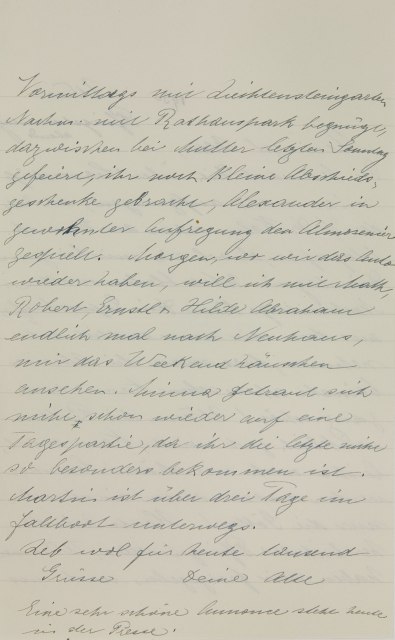 Vormittags mit Liechtensteingarten
Nachm. mit Rathauspark begnügt,
dazwischen bei Mutter letzten Sonntag
gefeiert, ihr noch kleine Abschieds-
geschenke gebracht, Alexander in
gewohnter Aufregung den Almosenier
gespielt. Morgen, wo wir das Auto
wieder haben, will ich mit Math,
Robert, Ernstl u Hilde Abraham
endlich mal nach Neuhaus,
mir das Weekendhäuschen
ansehen. Minna getraut sich
nicht schon wieder auf eine
Tagespartie, da ihr die letzte nicht
so besonders bekommen ist.
Martin ist über drei Tage im
Faltboot unterwegs.
Leb wol für heute tausend
Grüsse Deine Alle
Eine sehr schöne Annonce steht heute
in der Presse.